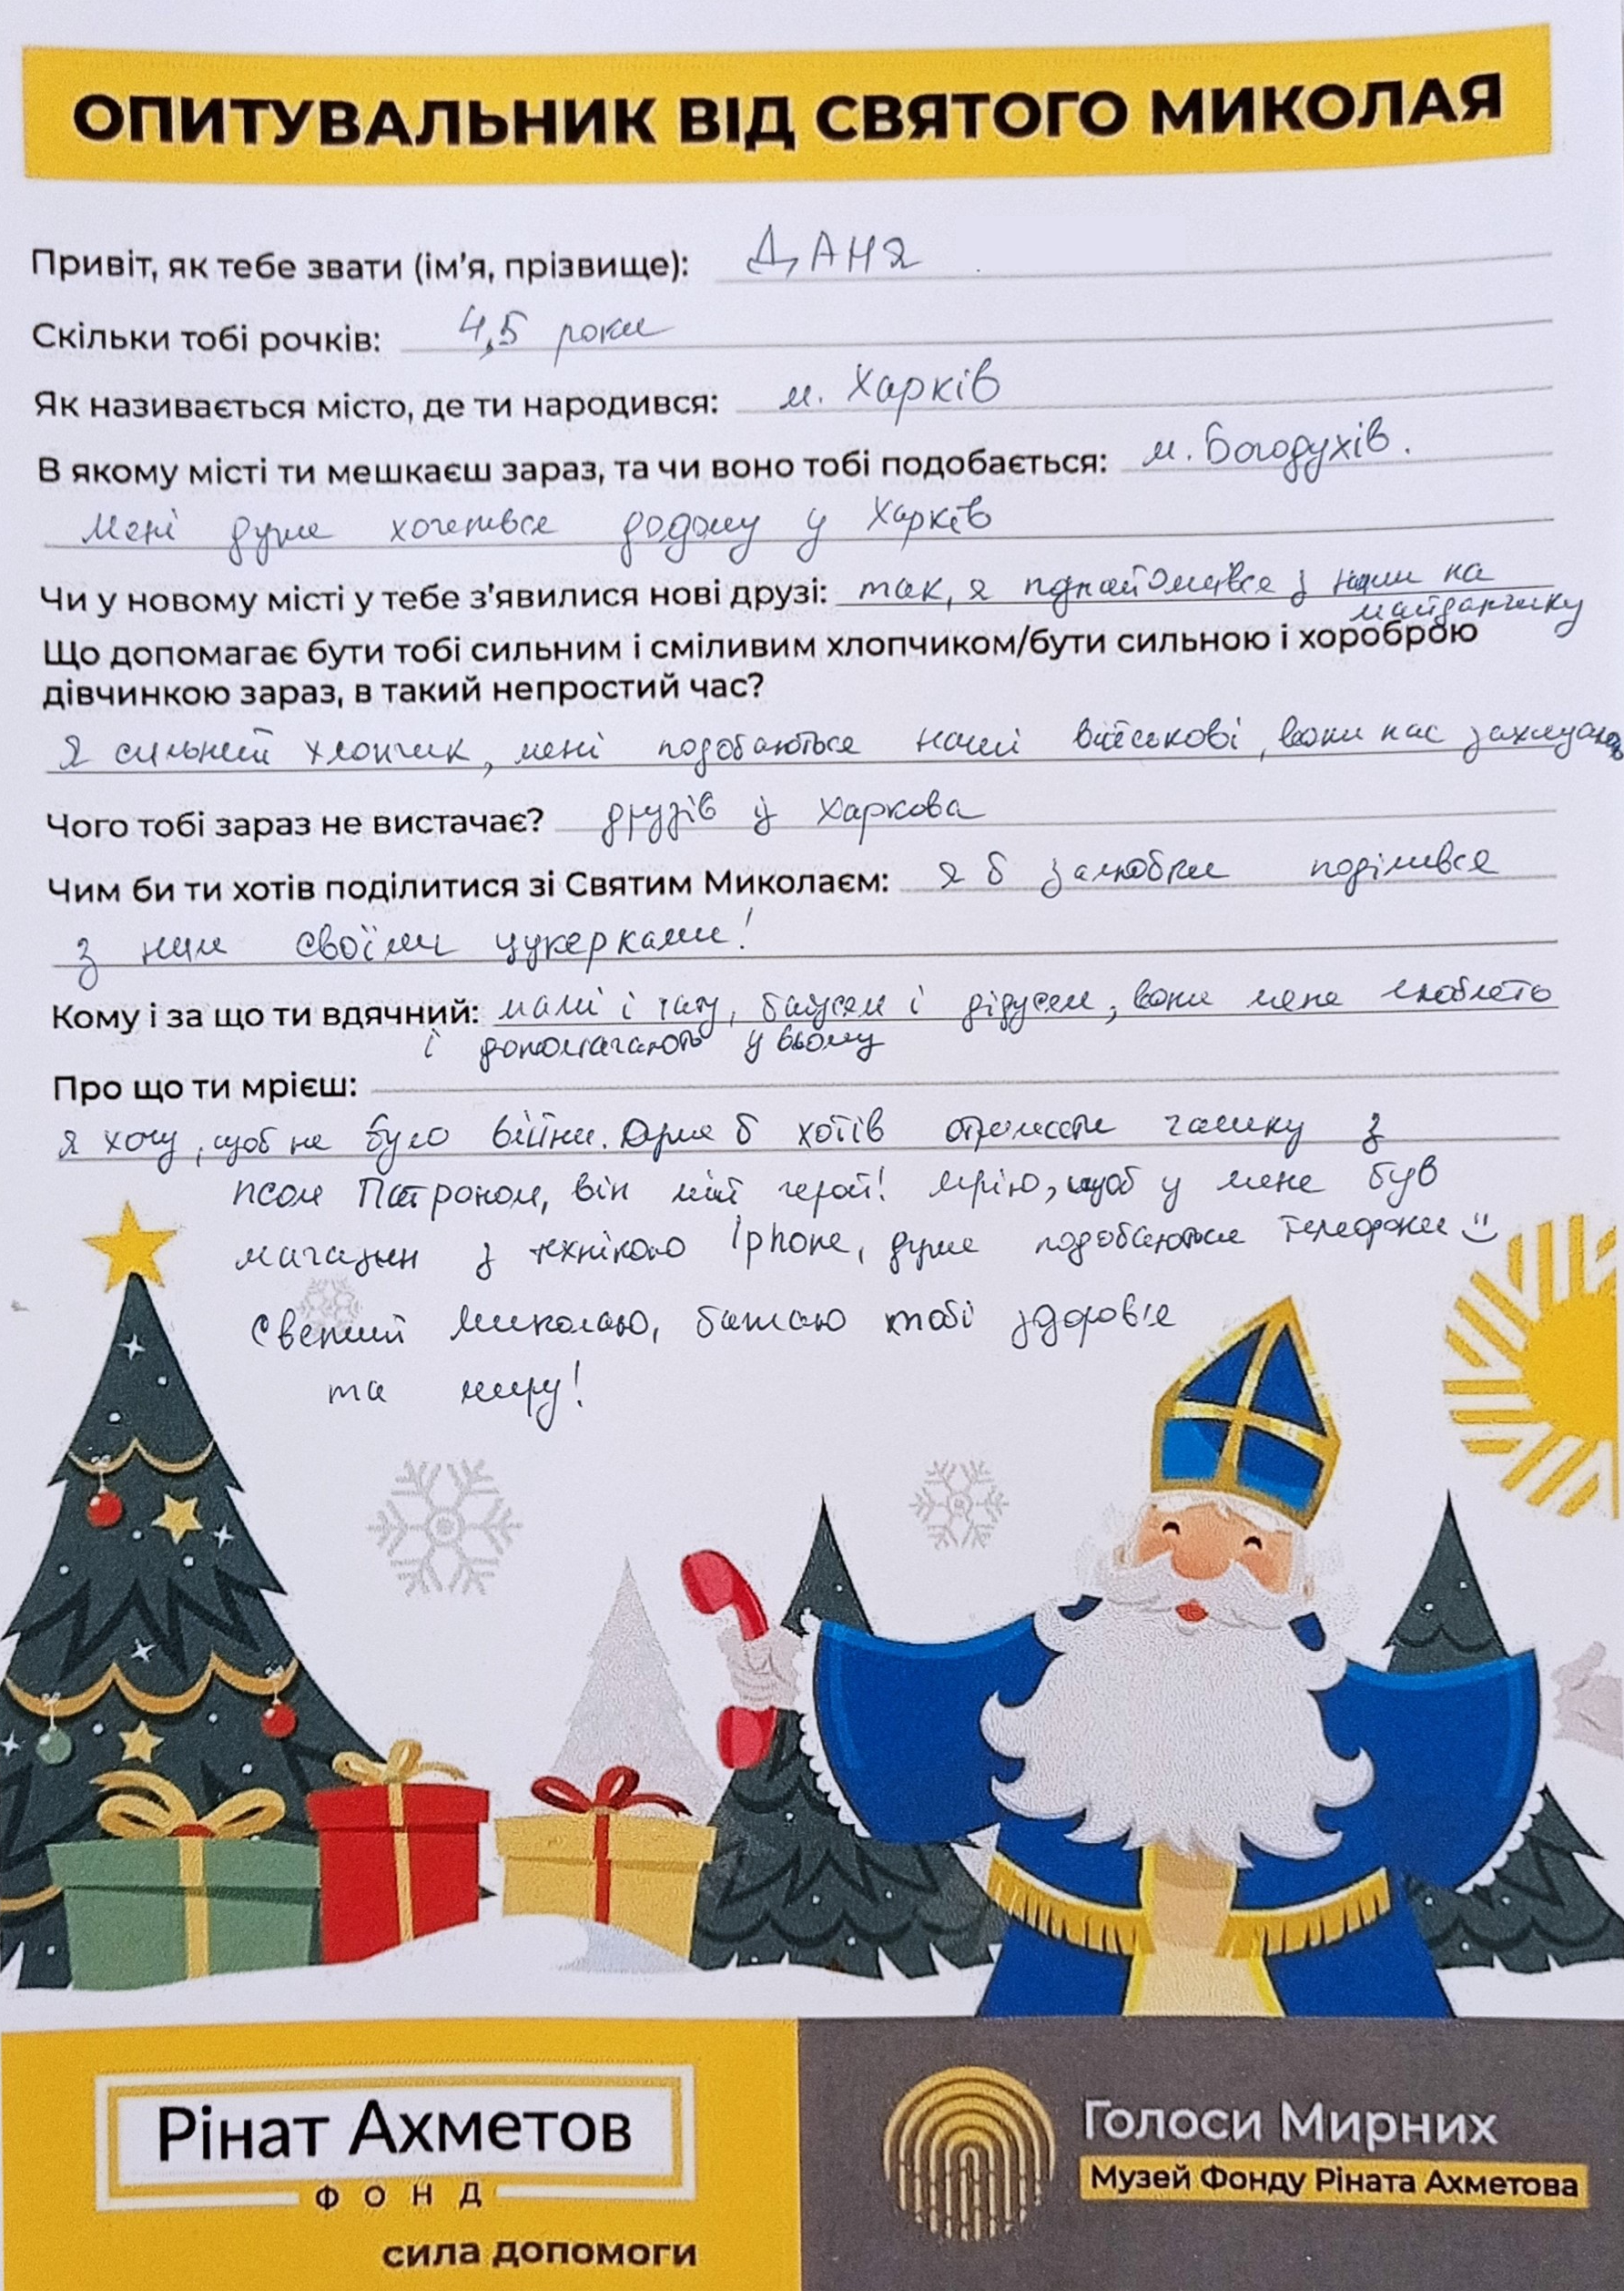 ОПИТУВАЛЬНИК ВІД СВЯТОГО МИКОЛАЯ
Привіт, як тебе звати (ім'я, прізвище): ДАНЯ
Скільки тобі рочків: 4,5 роки
Як називається місто, де ти народився: м. Харків
В якому місті ти мешкаєш зараз, та чи воно тобі подобається: м. Богодухів.
Мені дуже хочеться додому у Харків
Чи у новому місті у тебе з'явилися нові друзі: так, я з ними на
майданчику
Що допомагає бути тобі сильним і сміливим хлопчиком/бути сильною і хороброю
дівчинкою зараз, в такий непростий час?
Я сильний хлопчик, мені подобаються наші військові, вони нас захищають
Чого тобі зараз не вистачає? друзів й Харкова
Чим би ти хотів поділитися зі Святим Миколаєм: я б залюбки поділився
з ним своїми цукерками!
Кому і за що ти вдячний: мамі і тату, бабусям і дідусям, вони мене люблять
і допомагають у всьому
Про що ти мрієш:
я хочу, щоб не було війни. Дуже б хотів чашку з
псом Патроном, він мій герой! Мрію, щоб у мене був
магазин з технікою Iphone, дуже подобаються телефони
Святий Миколаю, бажаю тобі здоров'я
та миру!
Рінат Ахметов
ФОНД
сила допомоги
Голоси Мирних
Музей Фонду Ріната Ахметова